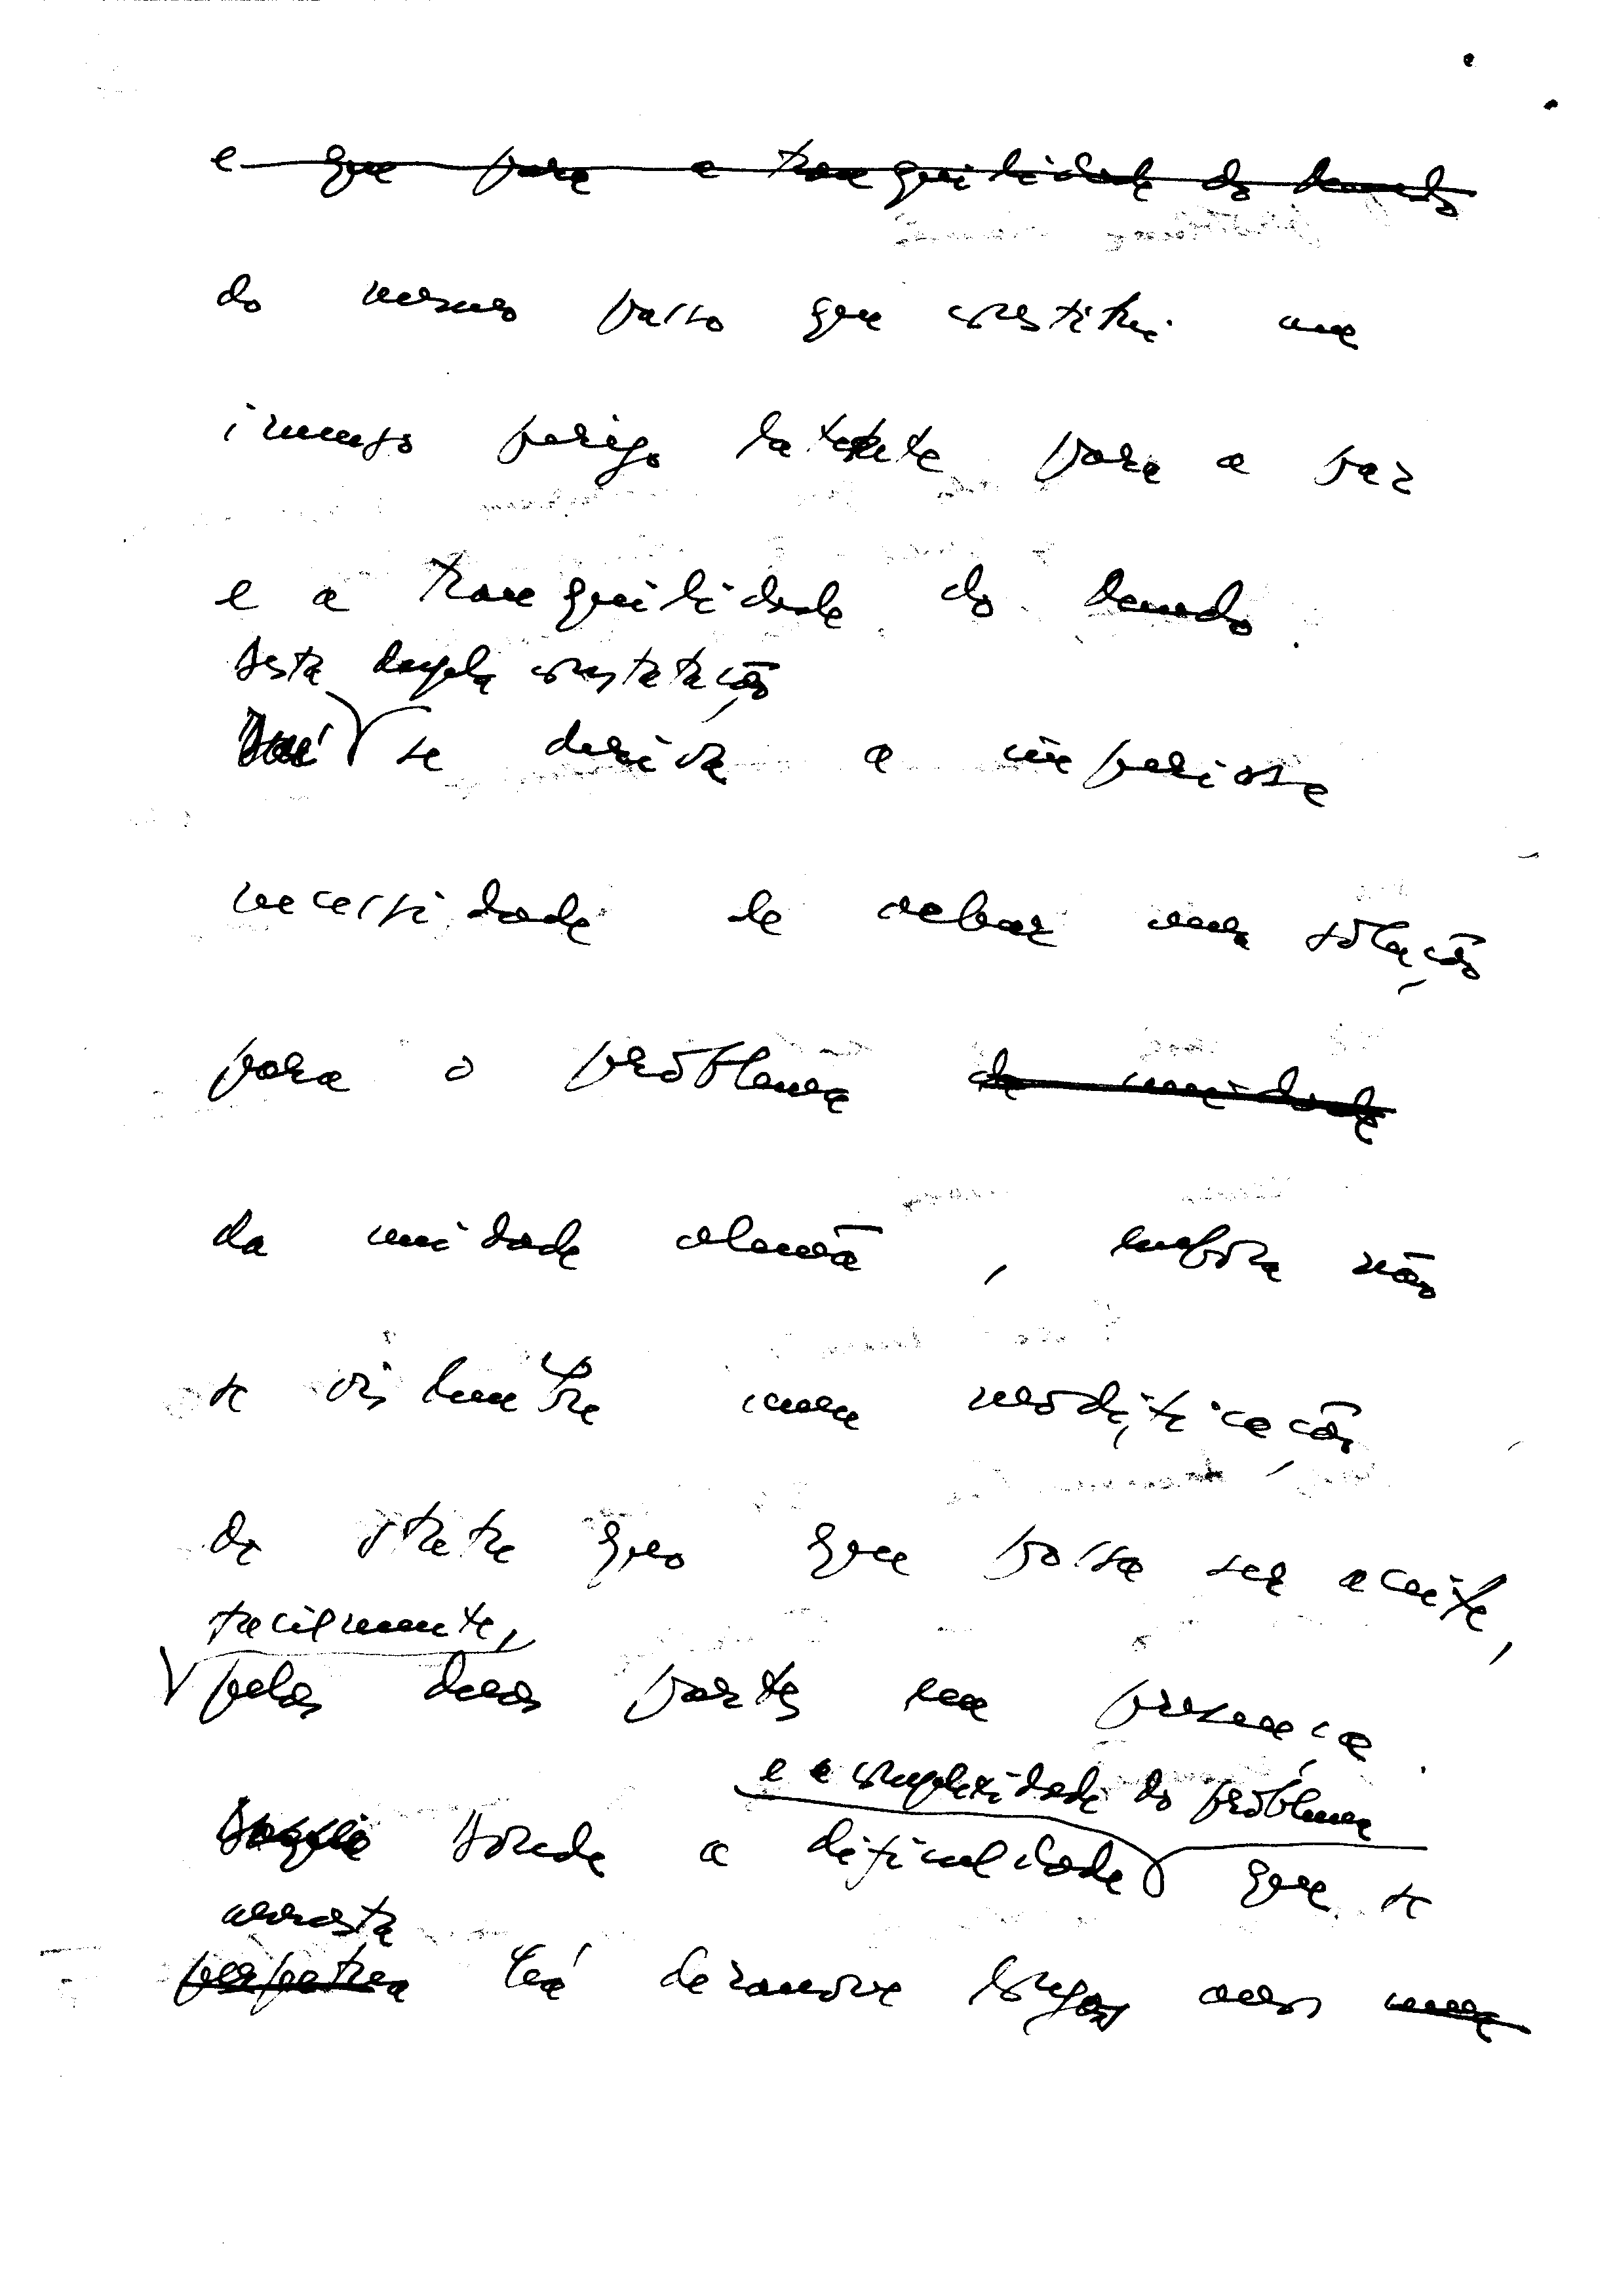 e que para a tranquilidade do mundo
do mesmo passo que constitui um
imenso perigo latente para a paz
e a tranquilidade do mundo.
Desta dupla constatação
Daí se deriva a imperiosa
necessidade de achar uma solução
para o problema da unidade
da unidade alemã, embora não
se vislumbre uma modificação
do statu quo que possa ser aceite,
facilmente,
pelas duas partes em presença.
e a complexidade do problema
Donde a dificuldade que se
arrasta
há de longos anos uma